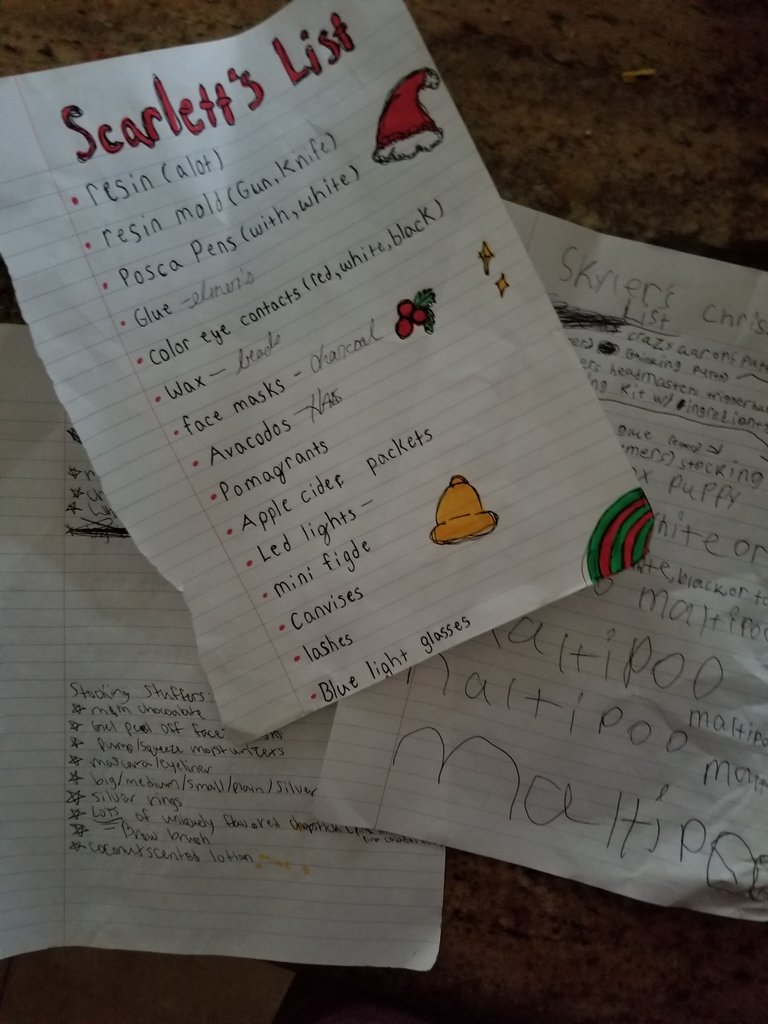 Scarlett's List
• resin (alot)
• resin mold (Gun, Knife)
• Posca Pens (with, white)
• Glue - elmer's
• color eye contacts (red, white, black)
• Wax - beads
• face masks - charcoal
• Avacodos - Has
• Pomagrants
• Apple cider packets
• Led lights -
• mini figde
• Canvises
• lashes
• Blue light glasses
Skyler's Chris
List
crazy aarons putt
thinking putty
headmasters
ing Kit w/ ingredients
stocking
puppy
white or
black, or
maltipoo
maltipoo
maltipoo
maltipo
Maltipoo
Stocking Stuffers:
m&m chocolate
gel peel off face
pump/squeeze moisturizers
mascara/eyeliner
big/medium/small/plain/silver
silver rings
LOTS of uniquely flavored chapstick
- Brow brush
coconut scented lotion